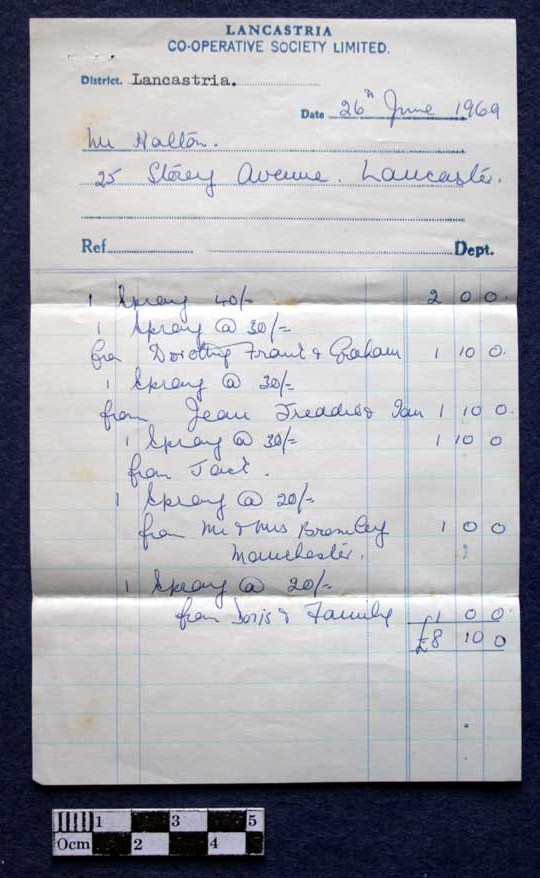 LANCASTRIA
CO-OPERATIVE SOCIETY LIMITED.
District. Lancastria.
Date 26th June 1969
Mr Halton.
25 Storey Avenue. Lancaster.
Ref. Dept.
1 Spray 40/- 2 0 0.
1 Spray @ 30/-
from Dorothy Frank & Graham 1 10 0.
1 Spray @ 30/-
from Jean Freddie & Ian 1 10 0.
1 Spray @ 30/- 1 10 0
from Jack.
1 Spray @ 20/-
from Mr & Mrs Bromley 1 0 0
Manchester.
1 Spray @ 20/-
from Doris & Family 1 0 0.
£8 10 0
0cm 1 2 3 4 5